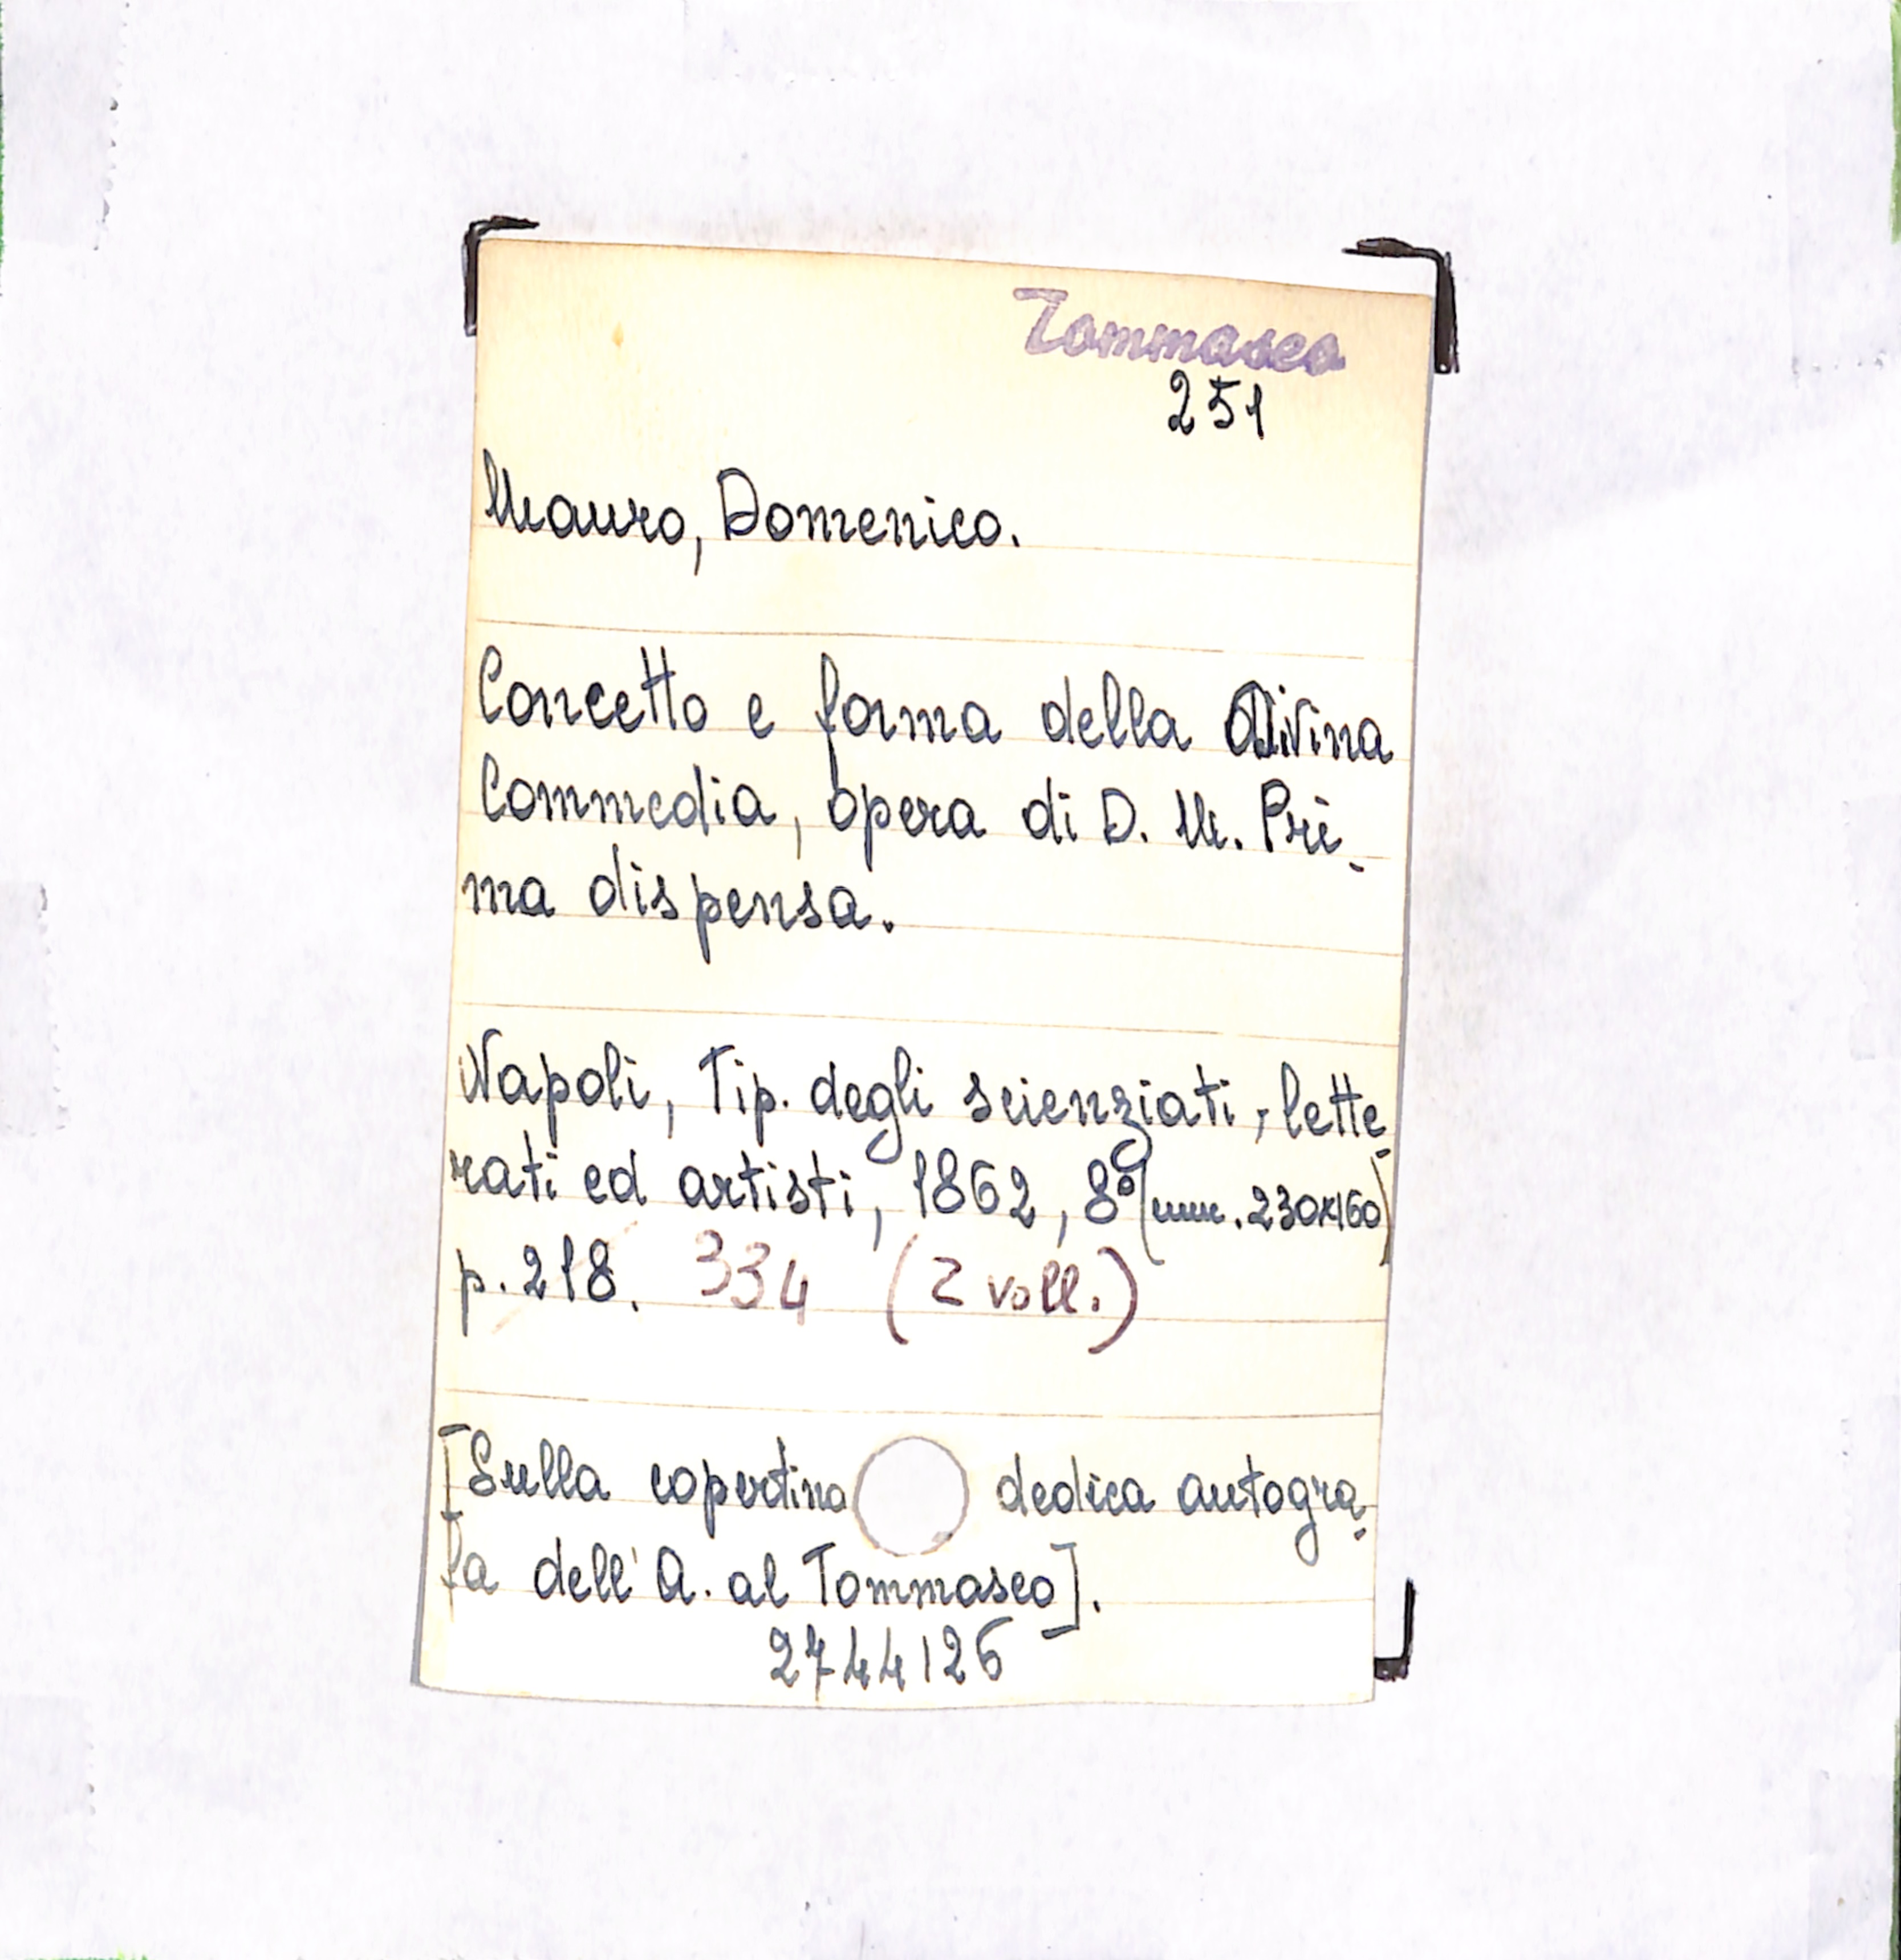 Tommaseo
251
Mauro, Domenico.
Concetto e forma della Divina
Commedia, opera di D. M. Pri-
ma dispensa.
Napoli, Tip. degli scienziati, lette-
rati ed artisti, 1862, 8° (mm. 230x160)
p. 218. 334 (2 voll.)
[Sulla copertina dedica autogra-
fa dell'A. al Tommaseo].
2744126